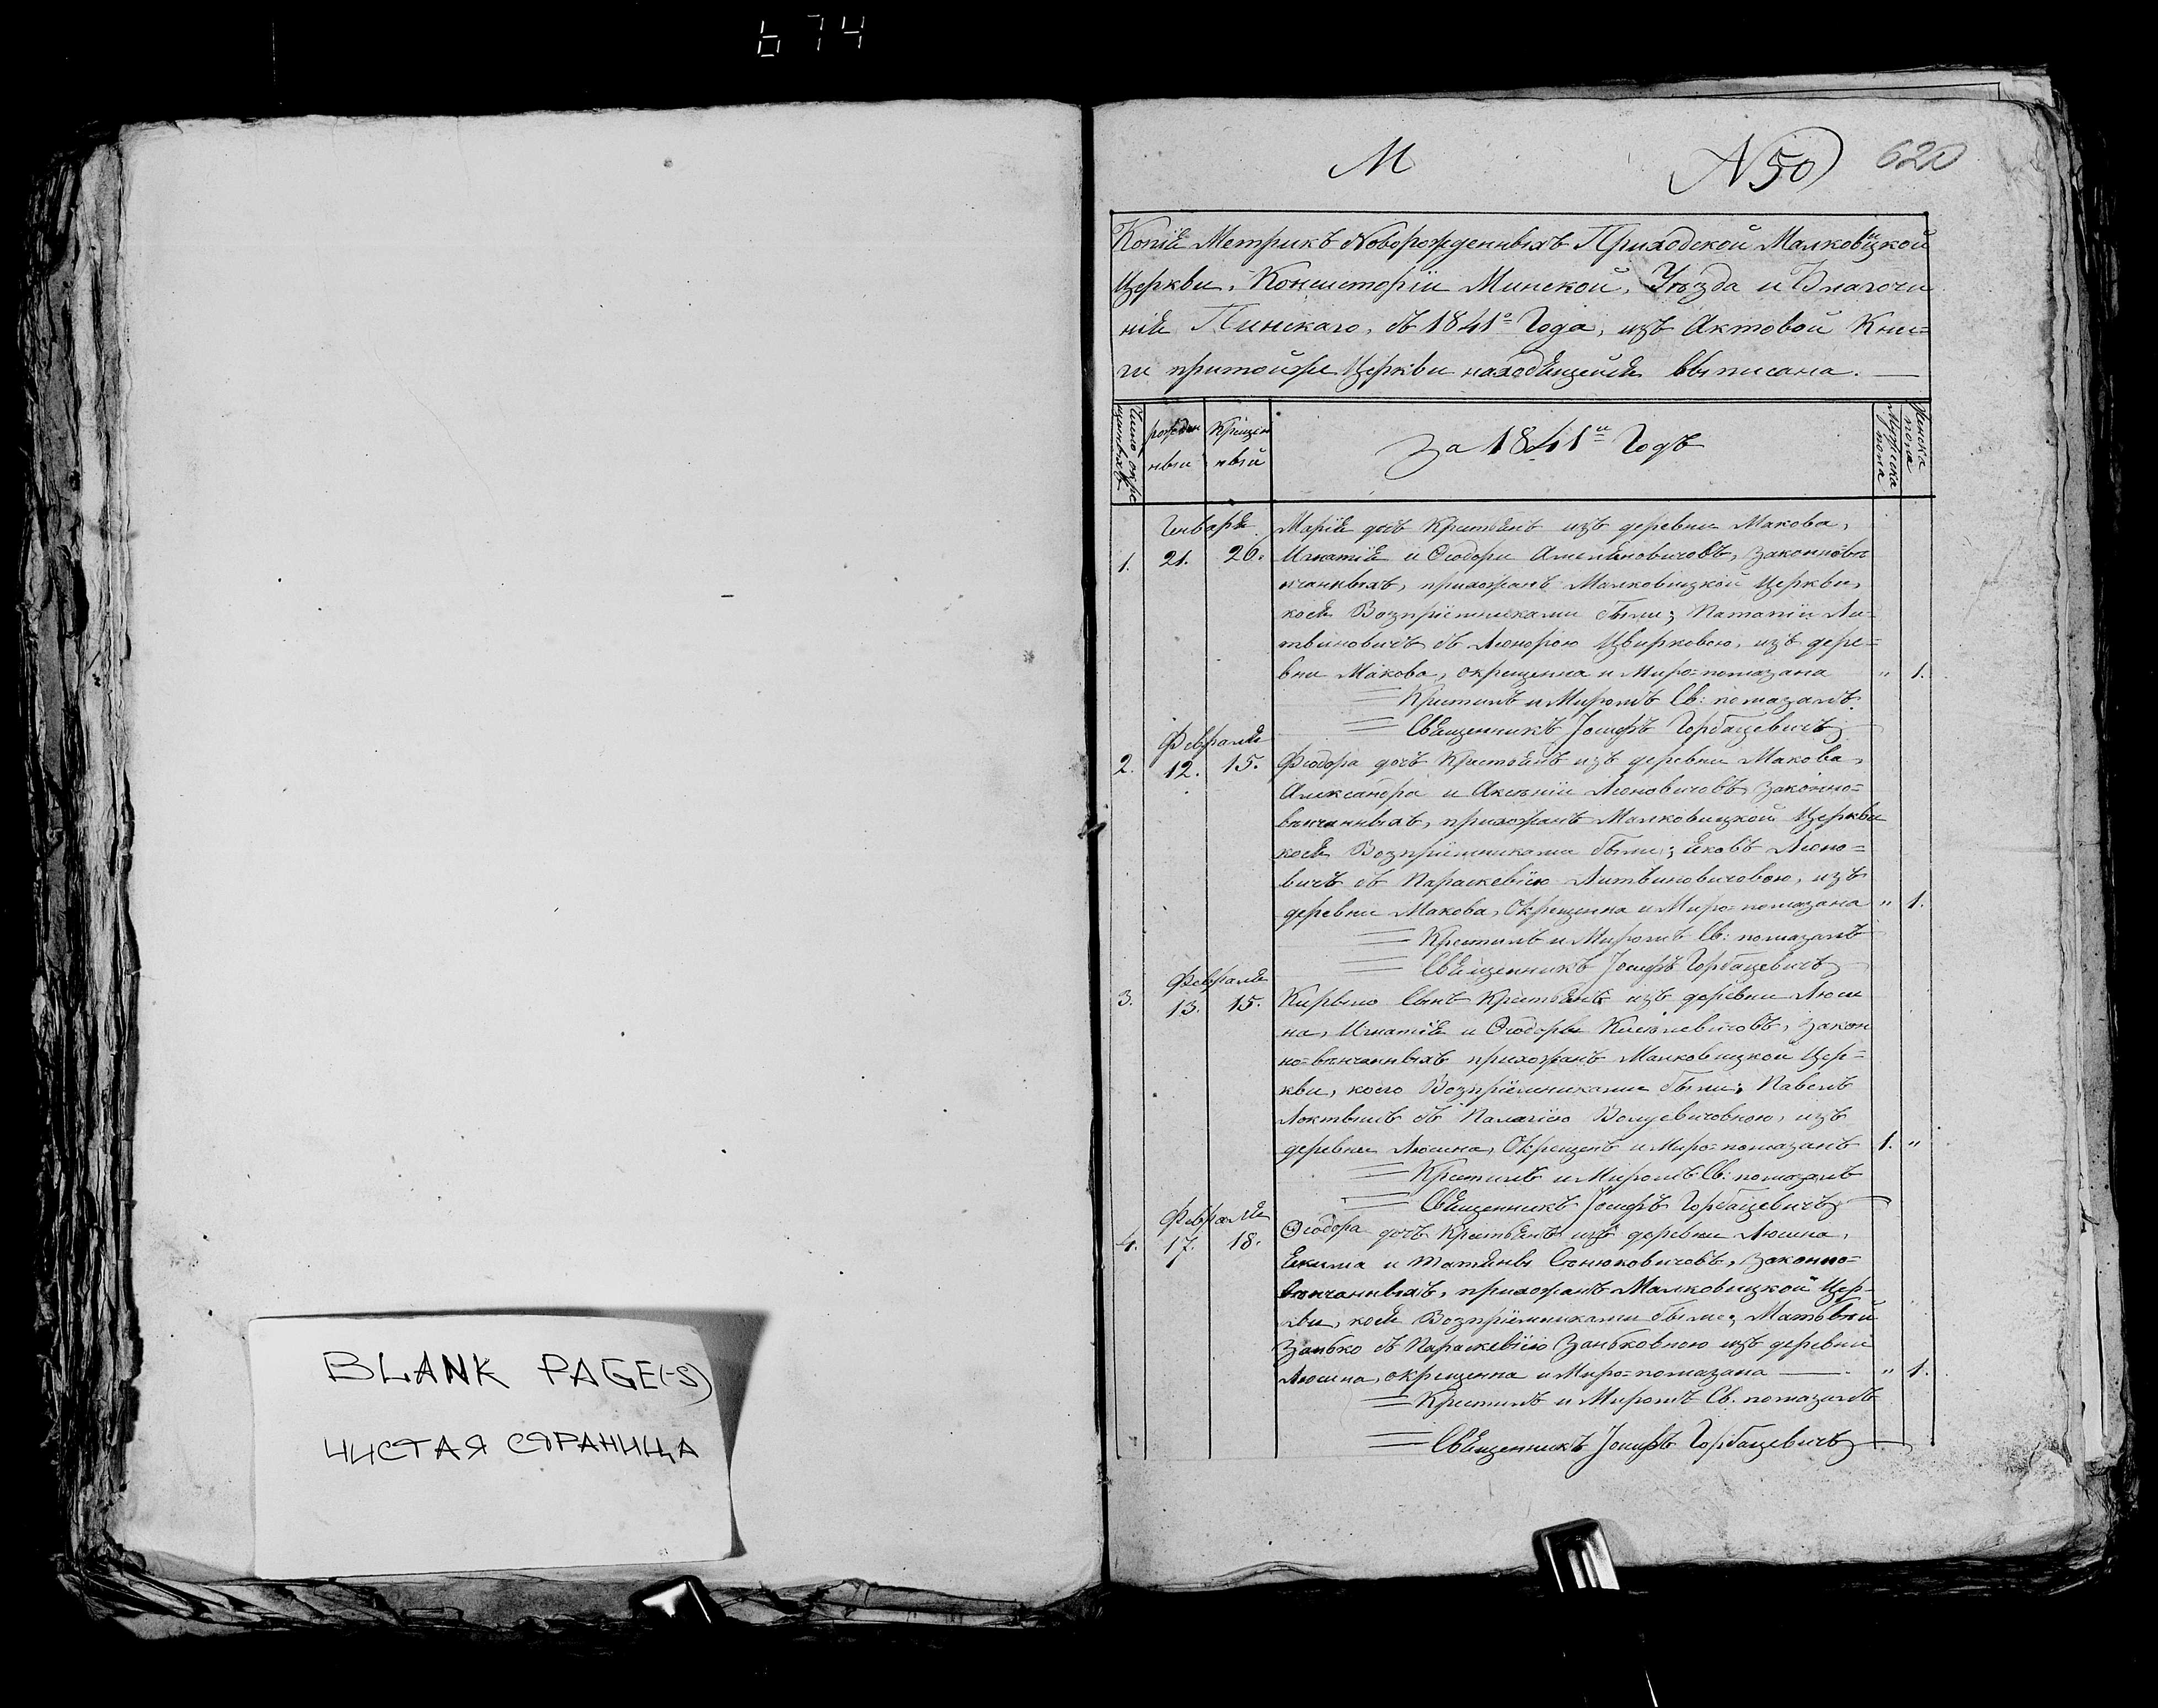 674
BLANK PAGE(-S)
ЧИСТАЯ СТРАНИЦА
М
N 50
620
Копія Метрикъ Новорожденныхъ Приходской Малковицкой
Церкви, Консисторіи Минской, Уѣзда и Благочи
нія Пинскаго, съ 1841º Года, изъ Актовой Кни=
ги притойже Церкви находящейся выписана. —
Число окре
щенныхъ
рожден
ныи
Крещен
ный
За 1841й Годъ
Мужска
пола
Женска
пола
Генваря
Марія дочь Крестьянъ изъ деревни Макова,
1. 21. 26. Игнатія и Ѳіодоры Амельяновичовъ, законновѣ
нчанныхъ, прихожанъ Малковицкой Церкви,
коея Возпріемниками были;
твиновичъ съ изъ дере=
вни Макова, окрещенна и Миро=помазана " 1.
Крестилъ и Миромъ Св: помазалъ.
Священникъ Іосифъ Горбацевичъ
Февраля
2. 12. 15. Фіодора дочь Крестьянъ изъ деревни Макова,
Александра и Аксѣніи Леоновичовъ, законно=
вѣнчанныхъ, прихожанъ Малковицкой Церкви
коея Возпріемниками были; Яковъ Леоно=
вичъ съ Параскевіею Литвиновичовою, изъ
деревни Макова, Окрещенна и Миро=помазана " 1.
Крестилъ и Миромъ Св: помазалъ
Священникъ Іосифъ Горбацевичъ
Февраля
3. 13. 15. Кирыло Сынъ Крестьянъ изъ деревни Люси
на, Игнатія и Ѳіодоры закон
но=вѣнчанныхъ прихожанъ Малковицкой Цер=
кви, коего Возпріемниками были; Павелъ
съ Палагіею изъ
деревни Люсина, Окрещенъ и Миро=помазанъ 1. "
Крестилъ и Миромъ Св: помазалъ
Священникъ Іосифъ Горбацевичъ
Февраля
4. 17. 18. Ѳіодора дочь Крестьянъ изъ деревни Люсина,
Якима и Татьяны Сенюковичовъ, Законно=
вѣнчанныхъ, прихожанъ Малковицкой Цер-
кви, коея Возпріемниками были; Матвѣй
съ Параскевіею изъ деревни
Люсина, окрещенна и Миро=помазана — " 1.
Крестилъ и Миромъ Св. помазалъ
Священникъ Іосифъ Горбацевичъ